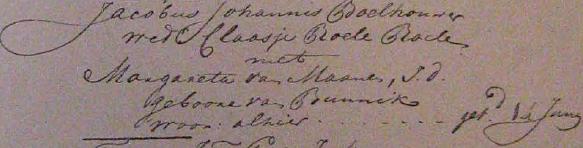 Jacobus Johannis Boelhouwer
wed.r Claasje Roele Roele
met
Margareta van Maanen, J.d.
geboore van Bunnik
woon. alhier . . . . . . . . . get.d Juny